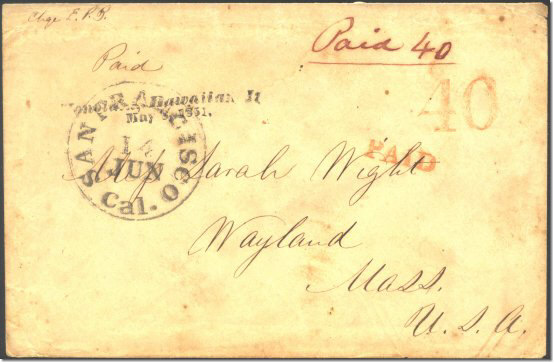 Chge E.P.B.
Paid 40
Paid
40
Honolulu, Hawaiian Is
May 3, 1851.
SAN FRANCISCO
14
JUN
Cal.
PAID
Sarah Wight
Wayland
Mass.
U.S.A.